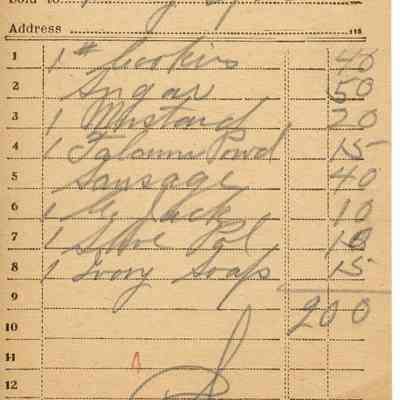 Sold to
Address 115
1 1 # Cookies 40
2 Sugar 50
3 1 Mustard 20
4 1 Talcum Powd 15
5 Sausage 40
6 1 Jack 10
7 1 Stove Pol 10
8 1 Ivory Soap 15
9 200
10
11
12